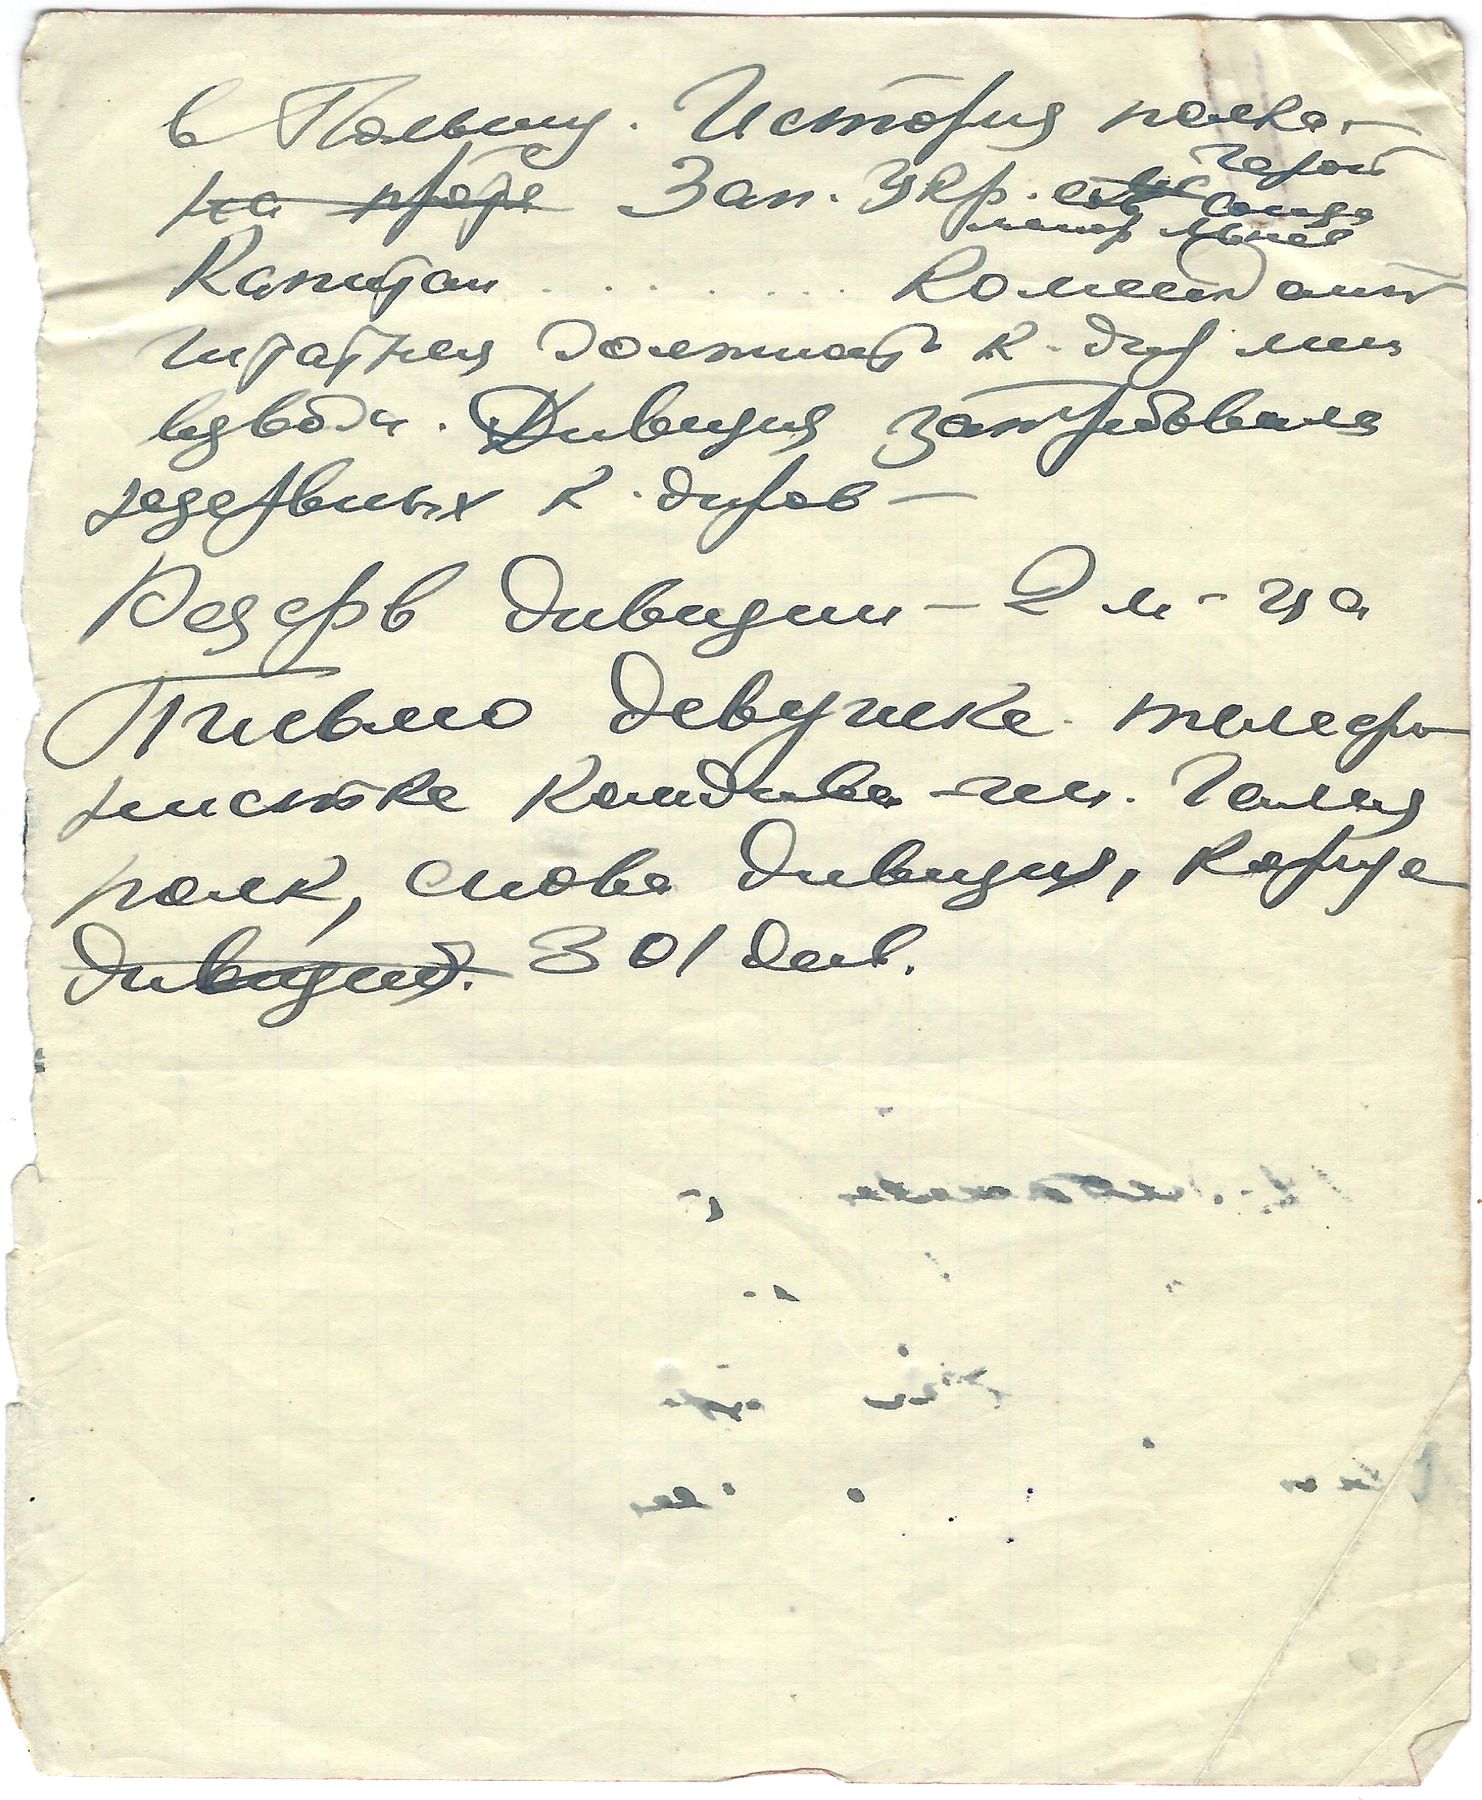 в Польшу. История полка —
на профе Зап. Укр. Герой
Союза
майор
Капитан . . . . . . . Комендант
штатная должность к-дир мин
взвода. Дивизия затребовала
резервных к-диров —
Резерв дивизии — 2 м-ца
Письмо девушке телефо-
нистке Галя
полк, снова дивизия, корпус
дивизия. 301 див.